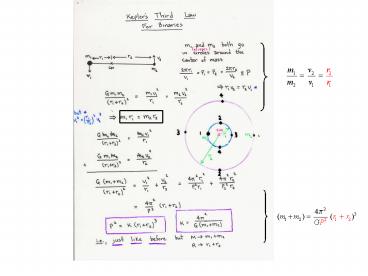 Kepler's Third Law
For Binaries
m₁ and m₂ both go
in circles around the
center of mass
m₁ r₁ r₂ m₂
cm
v₁ v₂
2πr₁/v₁ = P = 2πr₂/v₂ = P
⇒ r₁v₂ = r₂v₁
G m₁m₂/(r₁+r₂)² = m₁v₁²/r₁ = m₂v₂²/r₂
but
⇒ m₁ r₁ = m₂ r₂
G m₁m₂/(r₁+r₂)² = m₁v₁²/r₁
G m₁m₂/(r₁+r₂)² = m₂v₂²/r₂
G (m₁+m₂)/(r₁+r₂)² = v₁²/r₁ + v₂²/r₂ = 4π²r₁²/P²r₁ + 4π²r₂²/P²r₂
= 4π²/P² (r₁+r₂)
P² = K (r₁+r₂)³
K = 4π²/G(m₁+m₂)
i.e., just like before but M → m₁+m₂
R → r₁+r₂
m₁/m₂ = v₂/v₁ = r₂/r₁
(m₁ + m₂) = 4π²/GP² (r₁ + r₂)³